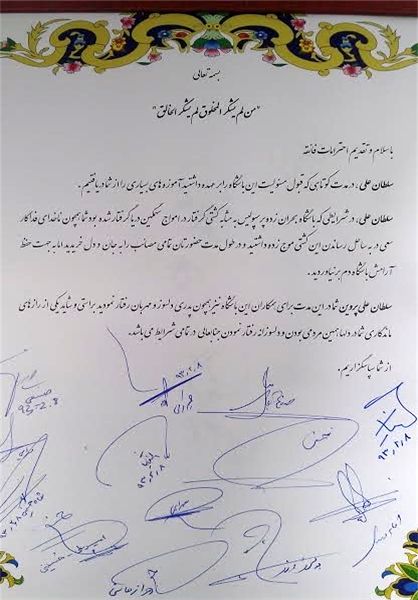 بسمه تعالی
"من لم یشکر المخلوق لم یشکر الخالق"
با سلام و تقدیم احترامات فائقه
سلطان علی، در مدت کوتاهی که قبول مسئولیت این باشگاه را بر عهده داشتید آموزه های بسیاری را از شما دریافتیم.
سلطان علی، در شرایطی که باشگاه بحران زده پرسپولیس به مثابه کشتی گرفتار در امواج سهمگین دریا گرفتار شده بود شما همچون ناخدای فداکار
سعی در به ساحل رساندن این کشتی موج زده داشتید و در طول مدت حضورتان تمامی مصائب را به جان و دل خریدید اما به جهت حفظ
آرامش باشگاه دم بر نیاوردید.
سلطان علی پروین شما در این مدت برای همکاران این باشگاه نیز همچون پدری دلسوز و مهربان رفتار نمودید براستی و شاید یکی از رازهای
ماندگاری شما در دلها همین مردمی بودن و دلسوزانه رفتار نمودن جنابعالی در تمامی شرایط می باشد.
از شما سپاسگزاریم.
۹۳،۲،۸
93.2.8
۹۳،۲،۸
۹۳،۲،۸